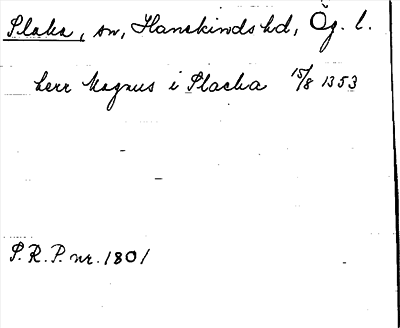 Slaka, sn, Hanekinds hd, Ög. l.
herr Magnus i Slacka 15/8 1353
S.R.P. nr. 1801